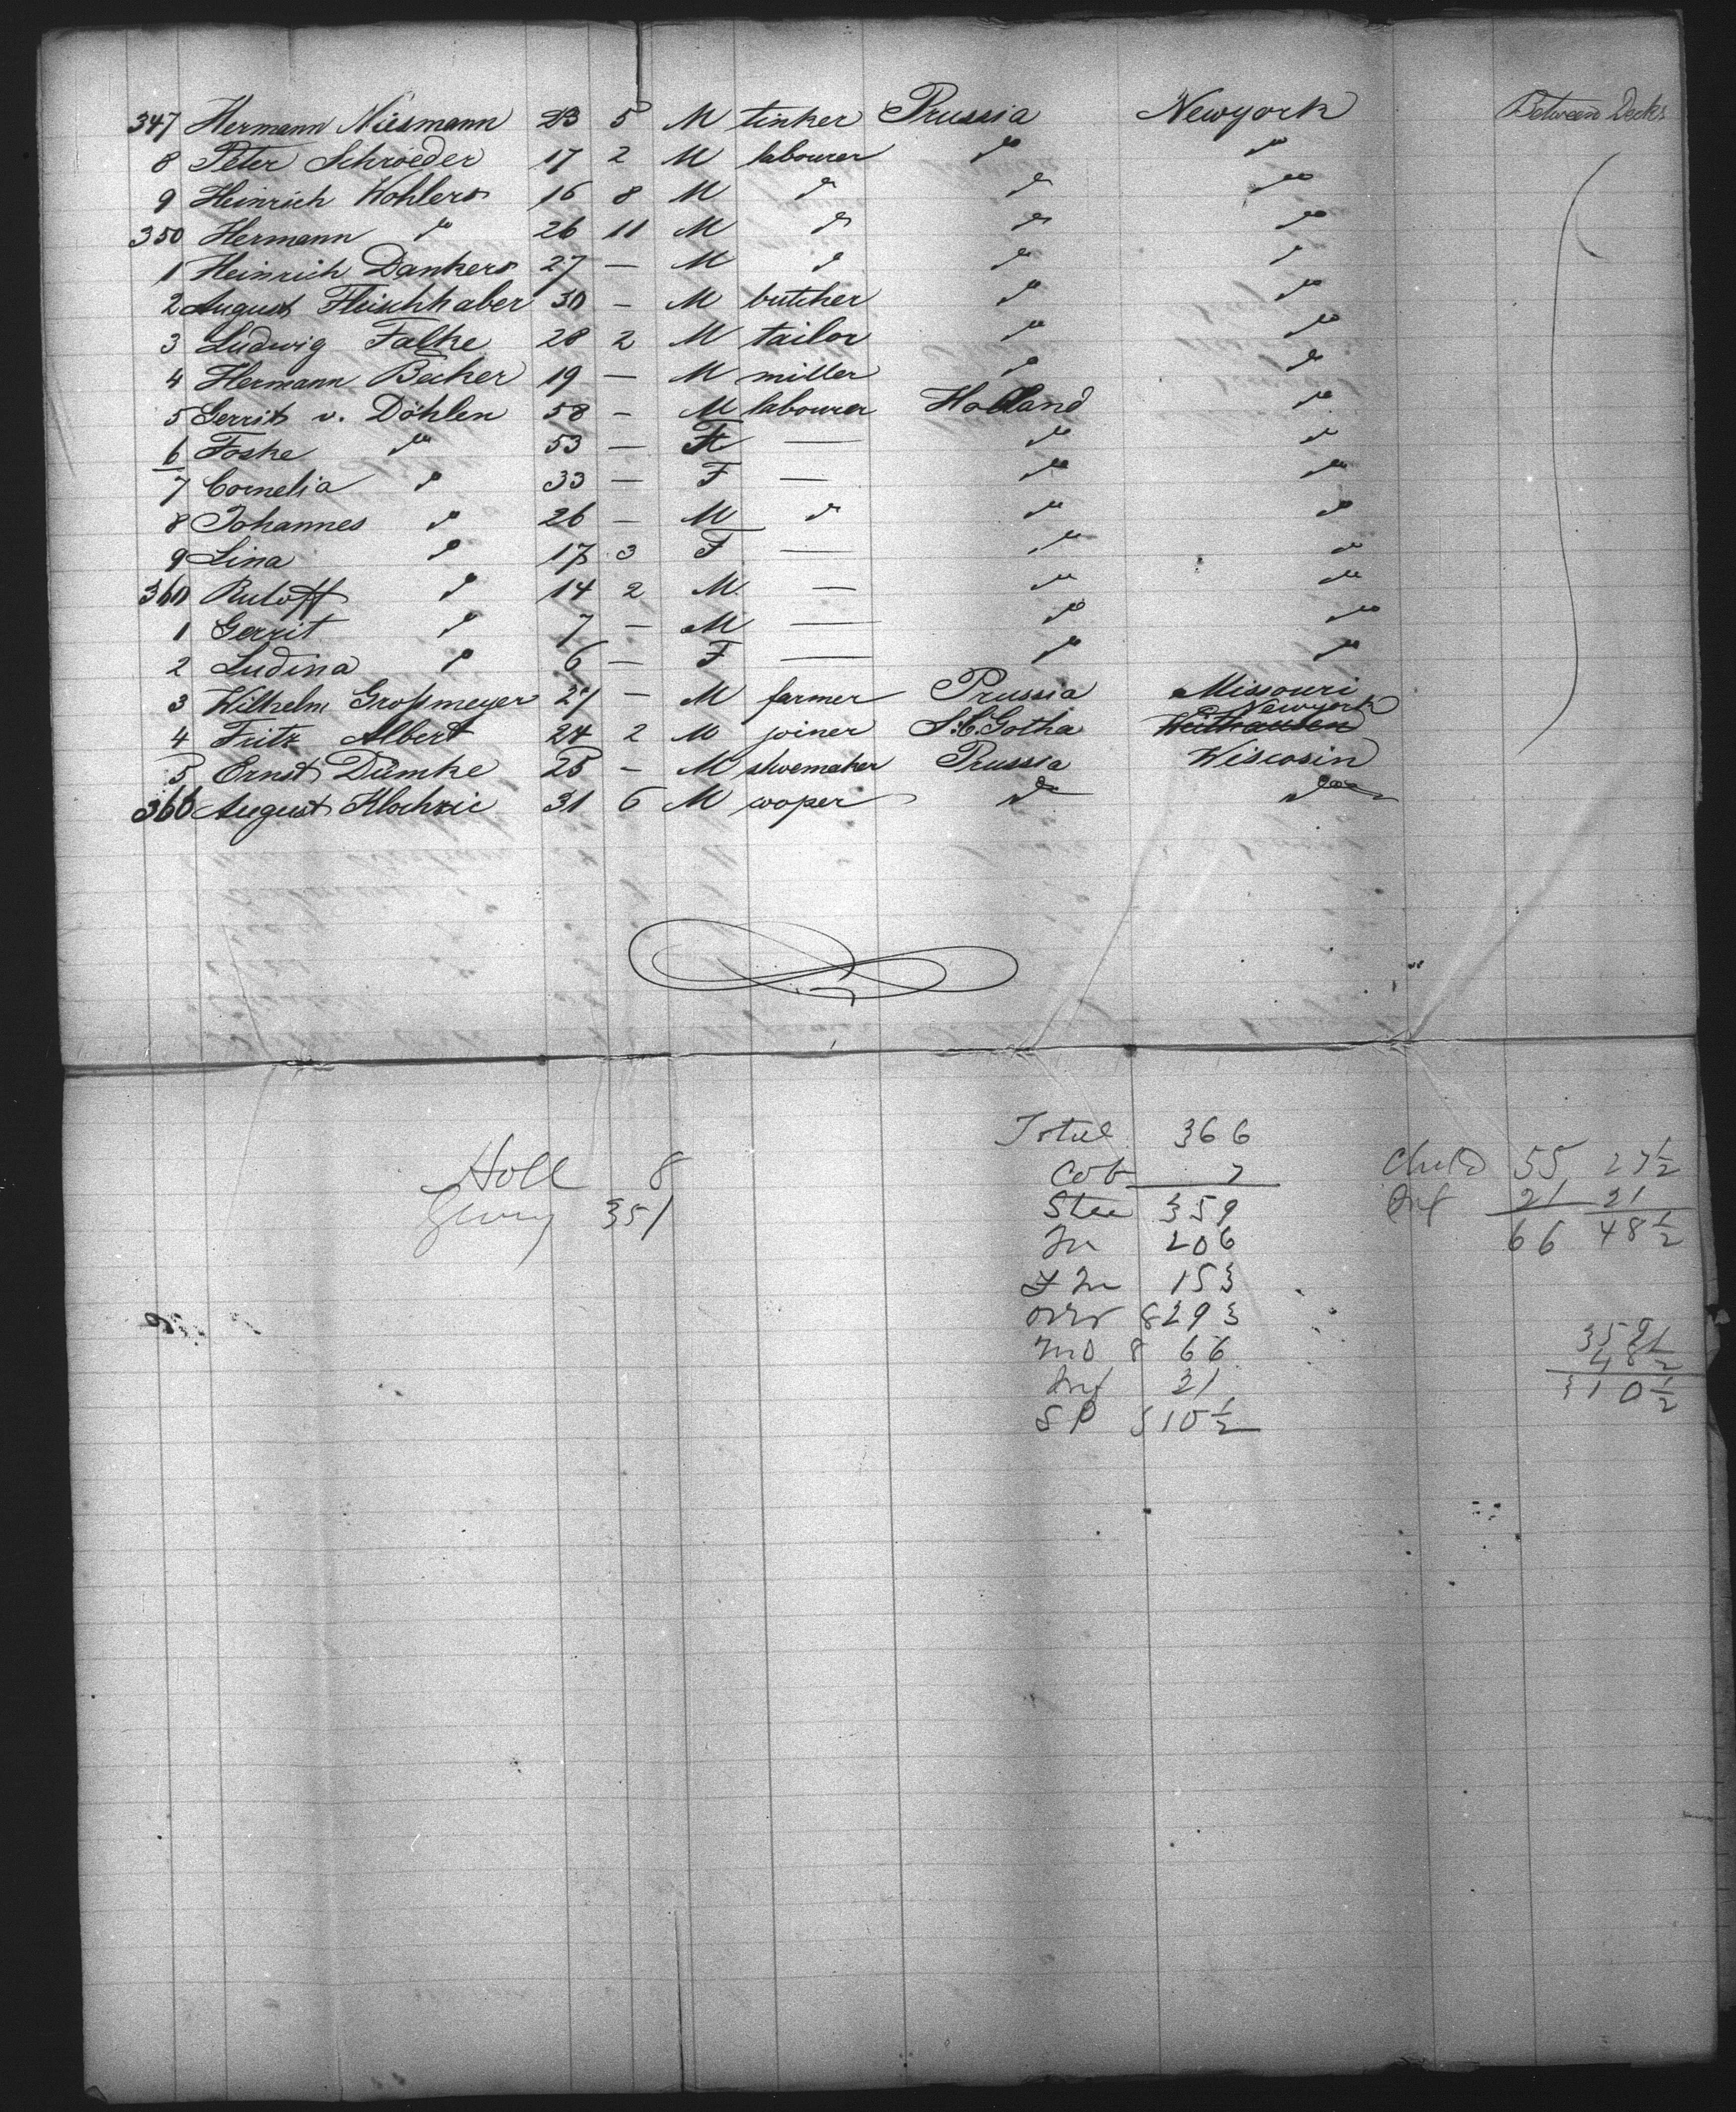 347 Hermann Nüsmann 23 5 M tinker Prussia Newyork Between Decks
8 Peter Schröeder 17 2 M labourer do do
9 Heinrich Wohlers 16 8 M do do do
350 Hermann do 26 11 M do do do
1 Heinrich Dankers 27 — M do do do
2 August Fleischhaber 30 — M butcher do do
3 Ludwig Falke 28 2 M tailor do do
4 Hermann Becker 19 — M miller do do
5 Gerrit v. Döhlen 58 — M labourer Holland do
6 Foske do 53 — F — do do
7 Cornelia do 33 — F — do do
8 Johannes do 26 — M do do do
9 Lina do 17 3 F — do do
360 Ruloff do 14 2 M — do do
1 Gerrit do 7 — M — do do
2 Ludina do 6 — F — do do
3 Wilhelm Großmeyer 27 — M farmer Prussia Missouri
4 Fritz Albert 24 2 M joiner S.C.Gotha Newyork
5 Ernst Dümke 25 — M shoemaker Prussia Wiscosin
366 August Klockzie 31 6 M cooper do do
Total 366
Holl 8 Cob 7 Child 55 27½
Germ 351 Stee 359 Inf 21 21
M 206 66 48½
F M 153
ovr 8 293
und 8 66 359
48½
Inf 21 310½
SP 310½